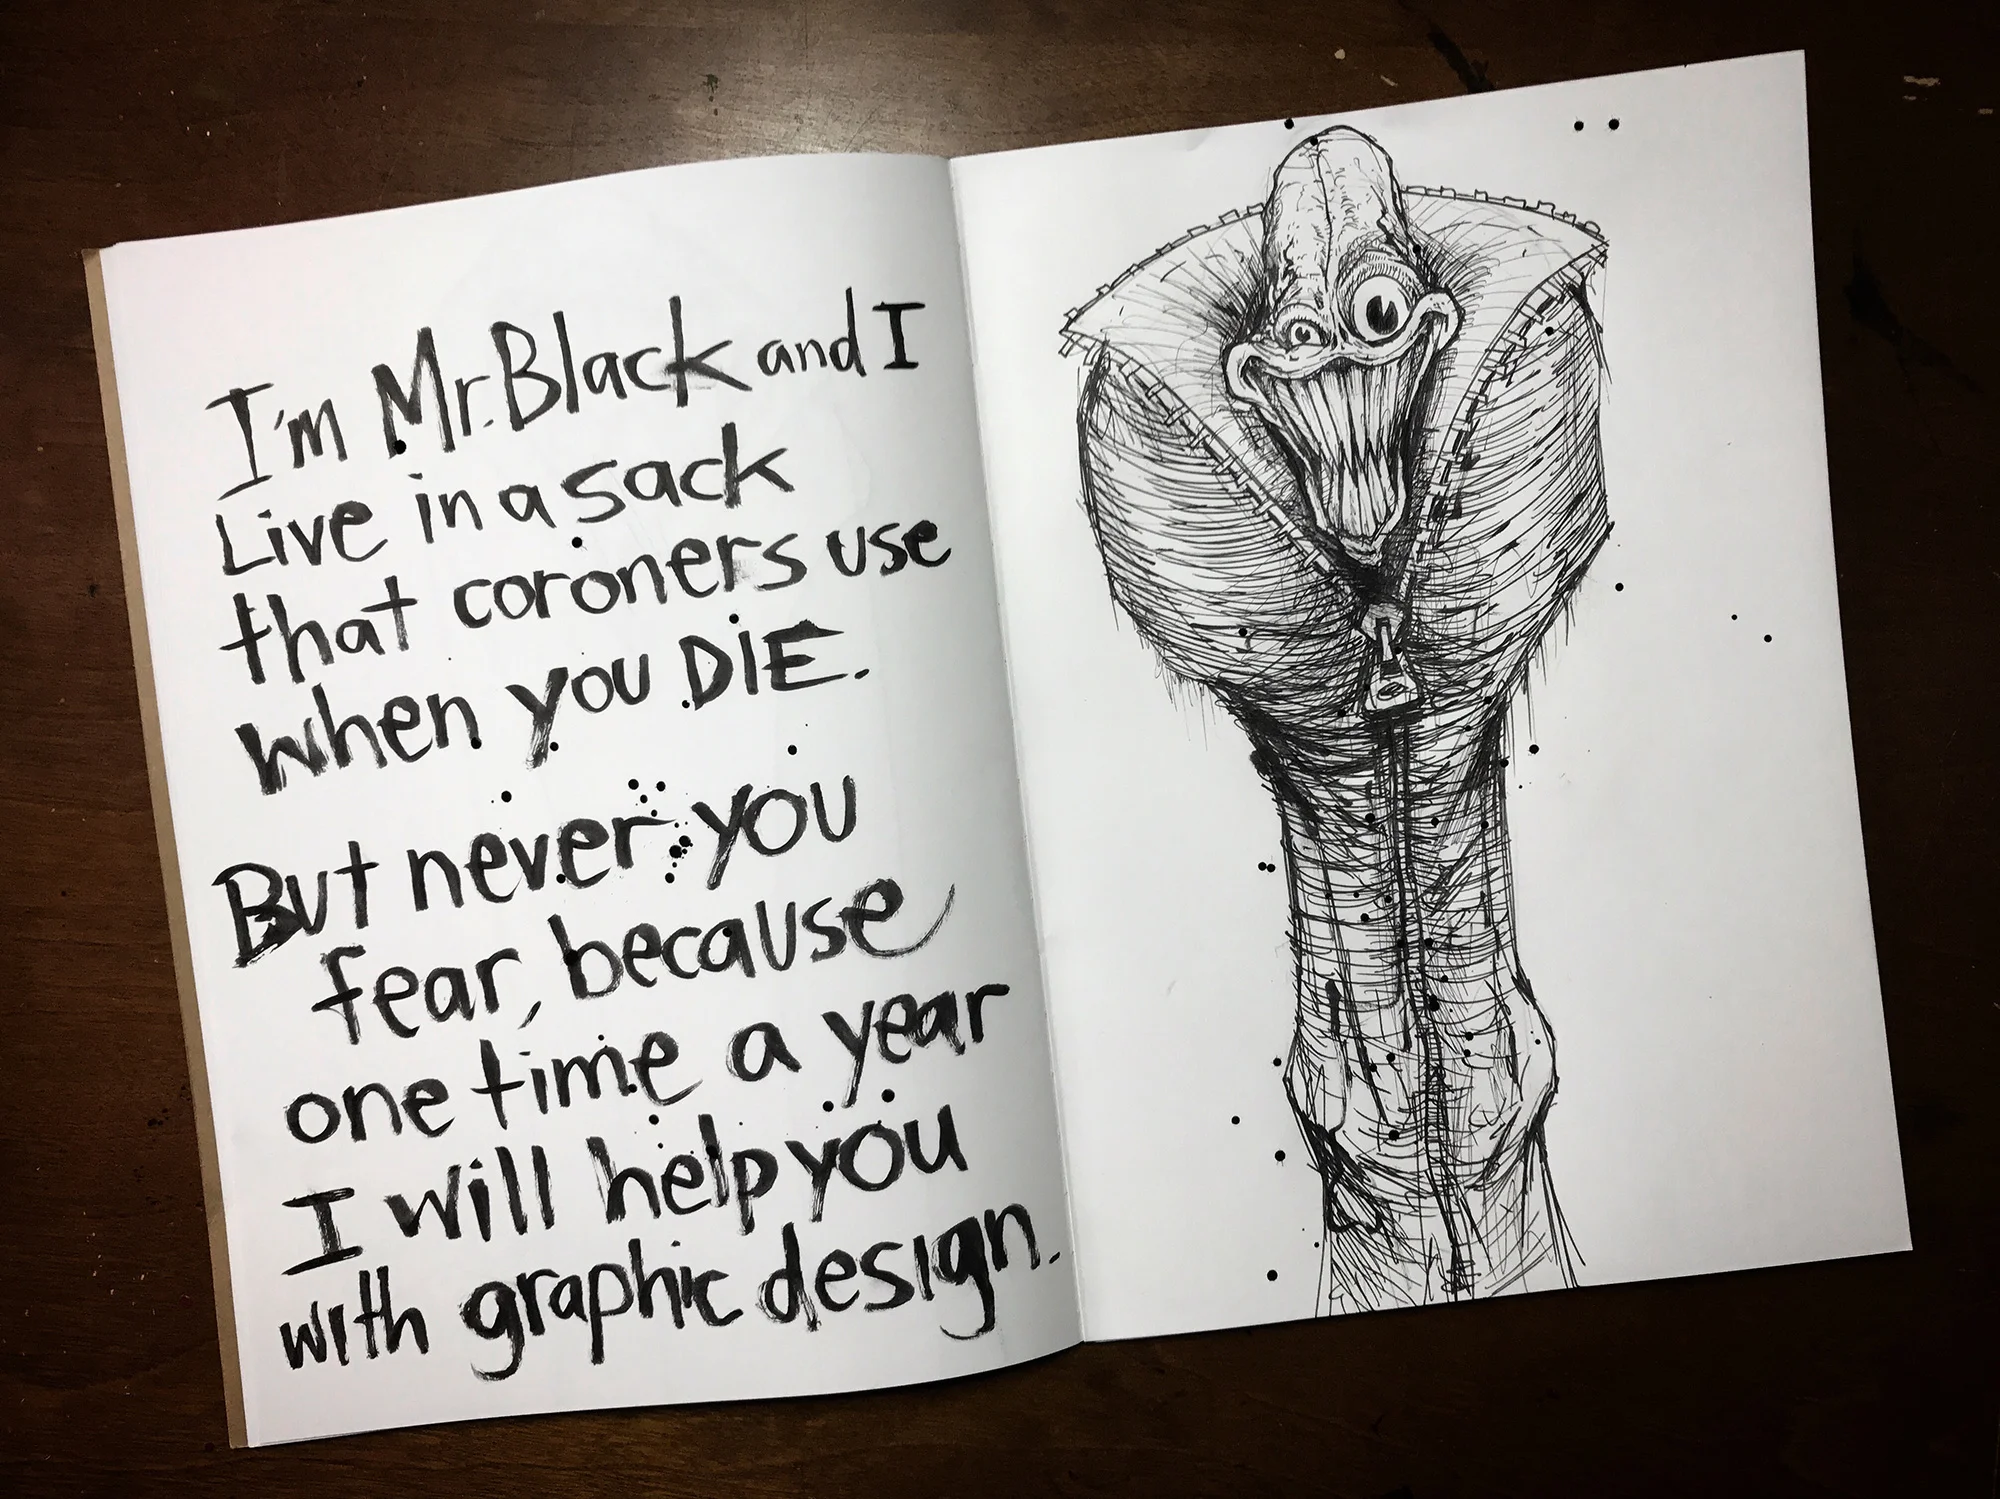 I'm Mr. Black and I
Live in a sack
that coroners use
when you DIE.
But never you
fear, because
one time a year
I will help you
with graphic design.